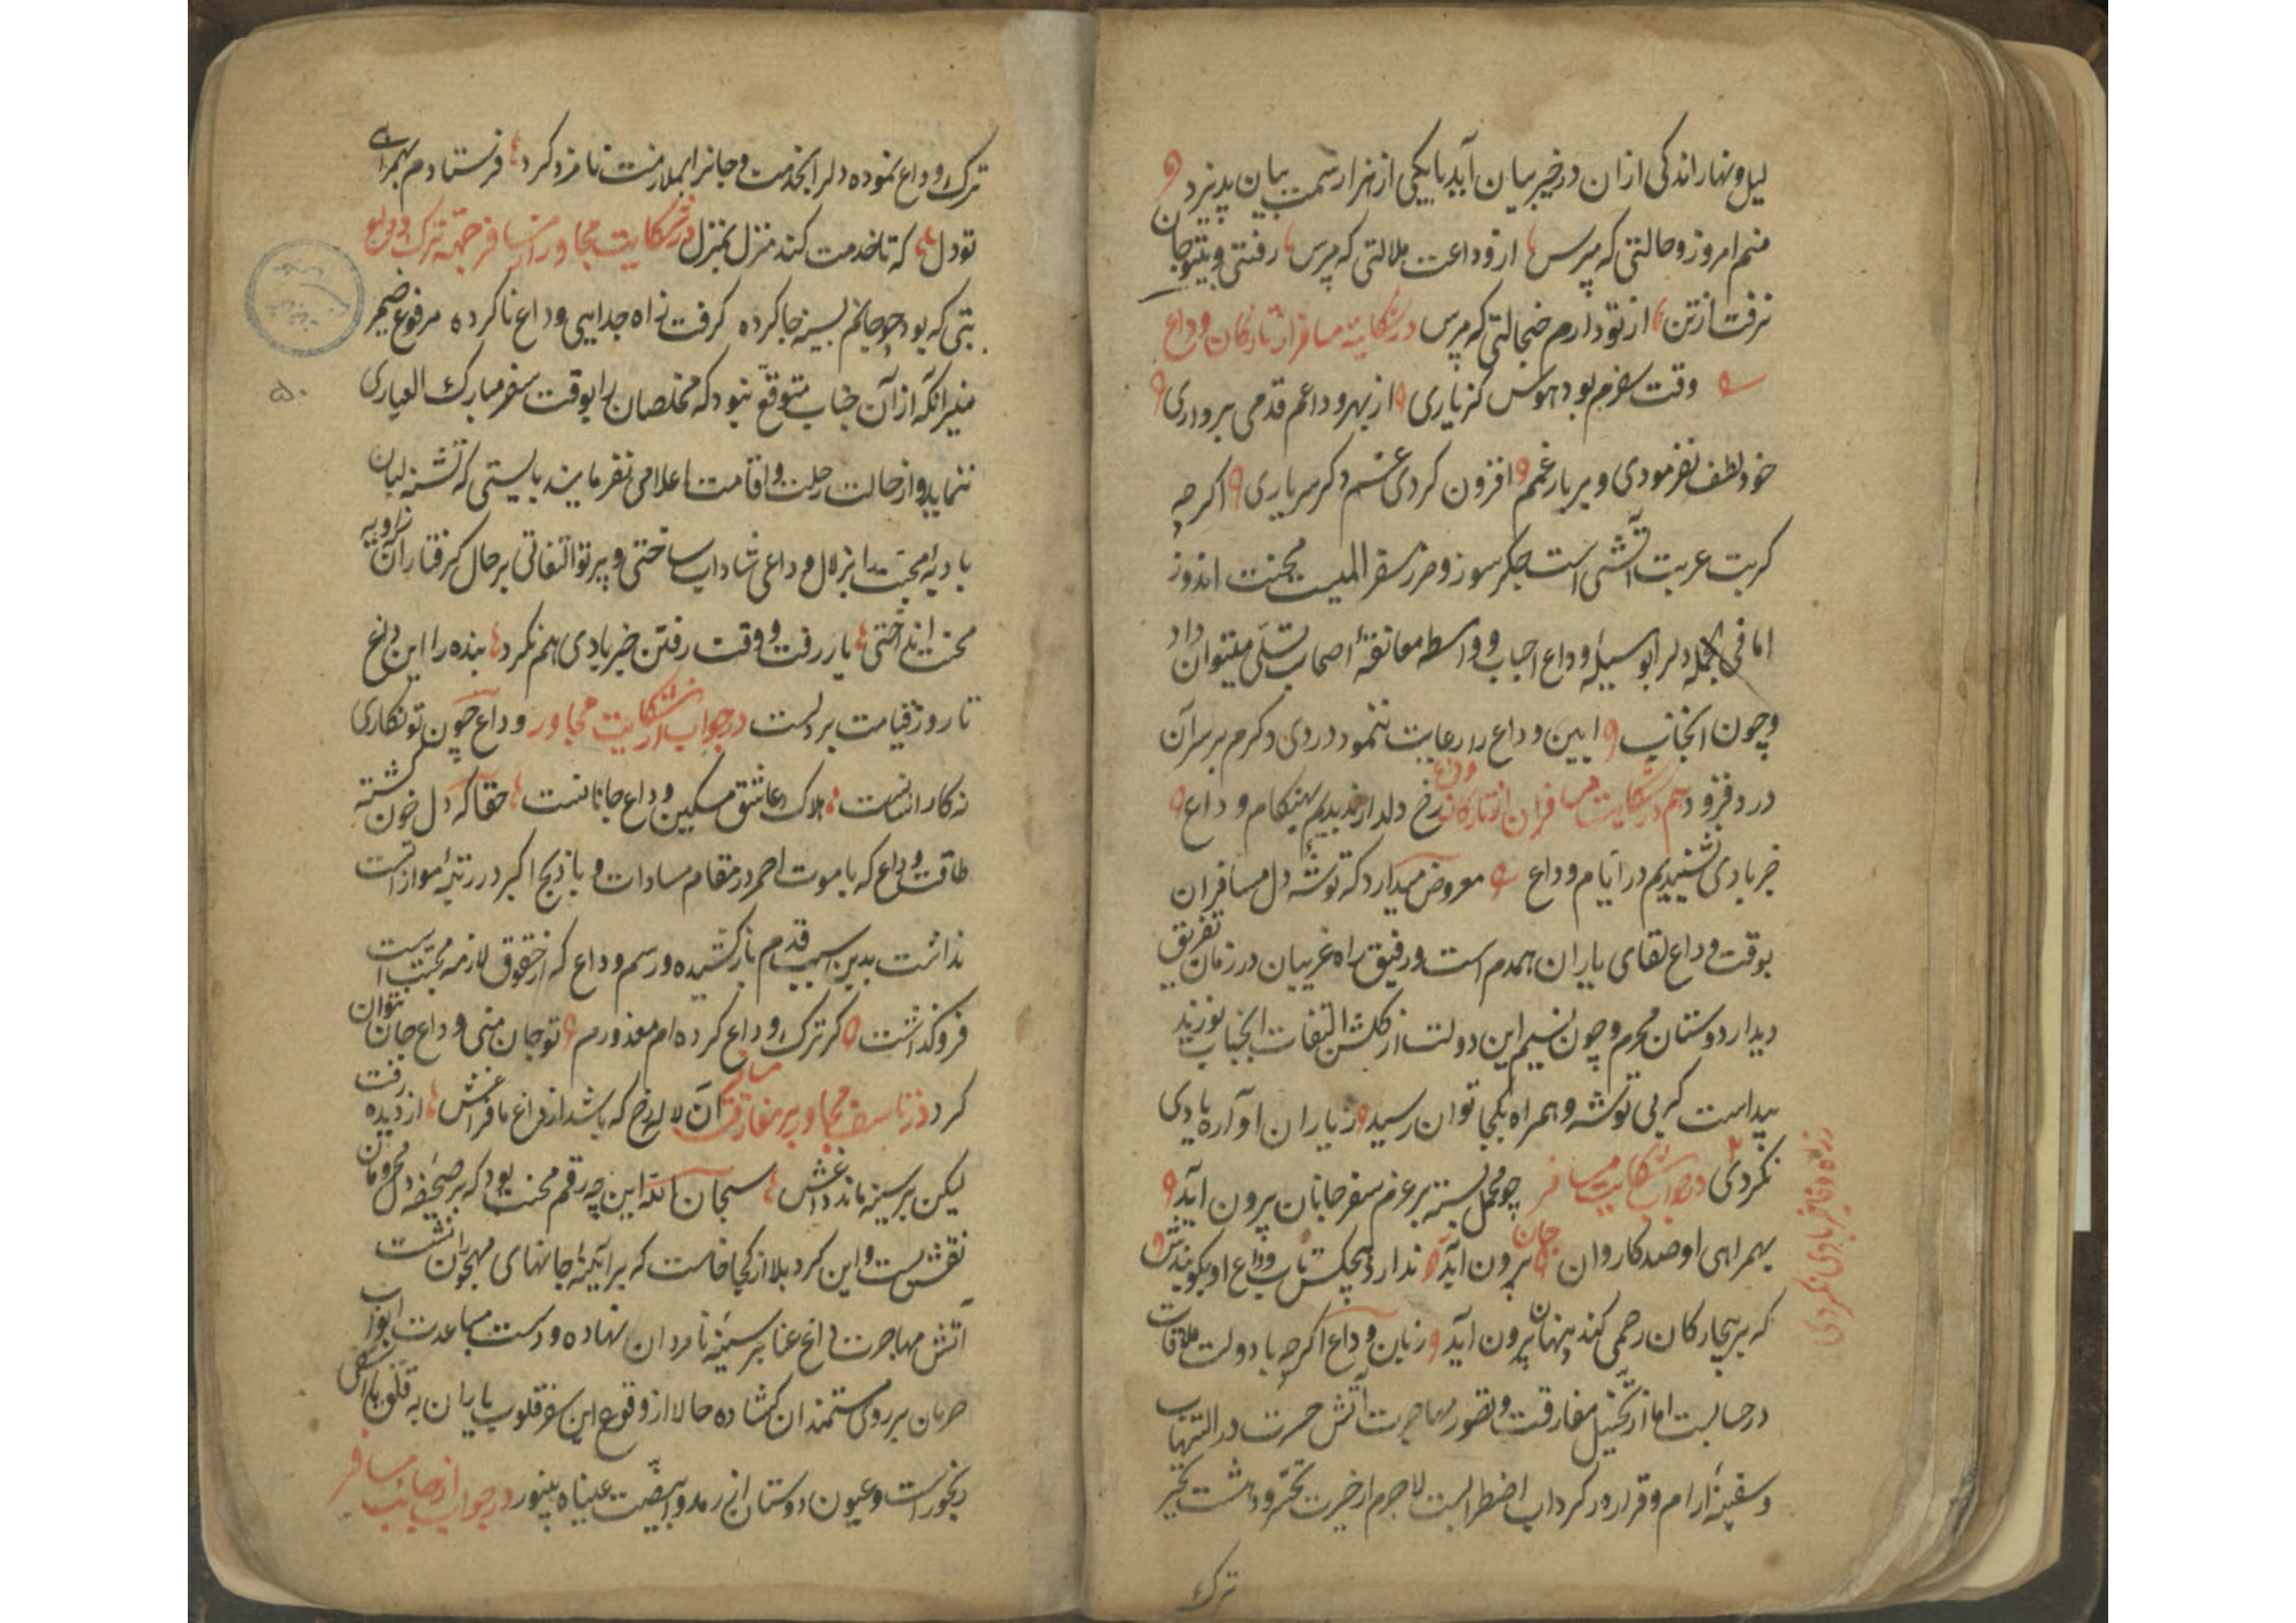 لیل و نهار اندکی ازان در خیر بیان آید یا یکی از هزار سمت بیان پذیرد
منم امروز و حالتی که مپرس از وداعت ملالتی که مپرس رفتی و بیتو جان
نرفت از تن از تو دارم خجالتی که مپرس در شکایت مسافر از تارکان وداع
وقت سفرم بود هوس کز یاری از بهر وداعم قدمی برداری
خود لطف نفرمودی و بر بار غمم افزون کردی غم دگر سرباری اگرچه
کربت غربت آتشی است جگر سوز و ضرر سفر المیست محنت اندوز
اما فی الجمله دلرا بوسیله وداع احباب و واسطه معانقه اصحاب تسلی میتوان داد
و چون آنجناب آیین وداع را رعایت ننمود دردی دگرم بر سر آن
درد فزود هم در شکایت مسافران از تارکان وداع رخ دلدار ندیدیم بهنگام وداع
خبر بادی نشنیدیم در ایام وداع معروض میدارد که توشه دل مسافران
بوقت وداع لقای یاران همدم است و رفیق راه غریبان در زمان تفریق
دیدار دوستان محرم و چون نسیم این دولت از گلشن التفات آنجناب نوزید
پیداست که بی توشه و همراه بکجا توان رسید ز یاران آواره یادی
نکردی در جواب شکایت مسافر چو محمل بسته بر عزم سفر جانان برون آید
بهمراهی او صد کاروان جان برون آید ندارد هیچکس تاب وداع او بگوییدش
که بر بیچارگان رحمی کند پنهان برون آید زبان وداع اگرچه با دولت ملاقات
در حسابست اما از تخیل مفارقت و تصور مهاجرت آتش حسرت در التهاب
و سفینه آرام و قرار در گرداب اضطرابست لاجرم از حیرت تحسر و دهشت تحیر
ترک
زره وفا خبر بادی نکردی
ترک وداع نموده دلرا بخدمت و جانرا بملازمت نامزد کرد فرستادم بهمراهی
تو دل که تا خدمت کند منزل بمنزل در شکایت مجاور از مسافر جهة ترک وداع
بتی که بود چو جانم بسینه جا کرده گرفت راه جدایی وداع ناکرده مرفوع ضمیر
منیر آنکه از آن جناب متوقع نبود که مخلصان را بوقت سفر مبارک العیاری
ننماید و از حالت رحلت و اقامت اعلامی نفرمایند بایستی که تشنه لبان
بادیه محبت را بزلال وداعی شاداب ساختی و پرتو التفاتی بر حال گرفتاران زاویه
محنت انداختی یار رفت و وقت رفتن خیر بادی هم نکرد بنده را این داغ
تا روز قیامت بر دلست در جواب از شکایت مجاور وداع چون تو نگاری
نه کار آسانست هلاک عاشق مسکین وداع جانانست حقا که دل خون گشته
طاقت وداع که با موت احمر در مقام مساوات و با ذبح اکبر در رتبه موازاتست
نداشت بدین سبب قدم باز کشیده و رسم وداع که از حقوق لازمه محبت است
فرو گذاشت گر ترک وداع کرده ام معذورم تو جان منی وداع جان نتوان
کرد در تاسف مجاور بر مفارقت مسافر آن لاله رخ که باشد از داغ ما فراغش از دیده رفت
لیکن بر سینه ماند داغش سبحان الله این چه رقم محنت بود که بر صحیفه دل محرومان
نقش بست و این گرد بلا از کجا خاست که بر آیینه جانهای مهجوران نشست
آتش مهاجرت داغ عنا بر سینه نامردان نهاده و دست مباعدت ابواب
حرمان بر روی مستمندان گشاده حالا از وقوع این سفر قلوب یاران به قلق
رنجور است و عیون دوستان از رمد و ابیضت عیناه بی نور در جواب از جانب مسافر
۵۰